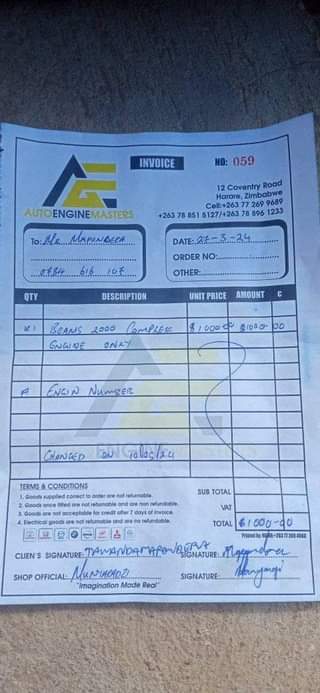 INVOICE
NO: 059
12 Coventry Road
Harare, Zimbabwe
Cell:+263 77 269 9689
+263 78 851 5127/+263 78 896 1233
AUTOENGINEMASTERS
To: Mr Mapondera
0784 616 107
DATE: 27-3-24
ORDER NO:
OTHER:
QTY DESCRIPTION UNIT PRICE AMOUNT C
x1 BEAMS 2000 COMPLETE $1000-00 $1000-00
ENGINE ONLY
ENGIN NUMBER
CHANGED ON 10/05/24
TERMS & CONDITIONS
1. Goods supplied correct to order are not returnable.
2. Goods once fitted are not returnable and are non refundable.
3. Goods are not acceptable for credit after 7 days of invoice.
4. Electrical goods are not returnable and are no refundable.
SUB TOTAL
VAT
TOTAL $1000-00
CLIEN'S SIGNATURE: TAWANDA MAPONDERA SIGNATURE:
SHOP OFFICIAL: SIGNATURE:
"Imagination Made Real"